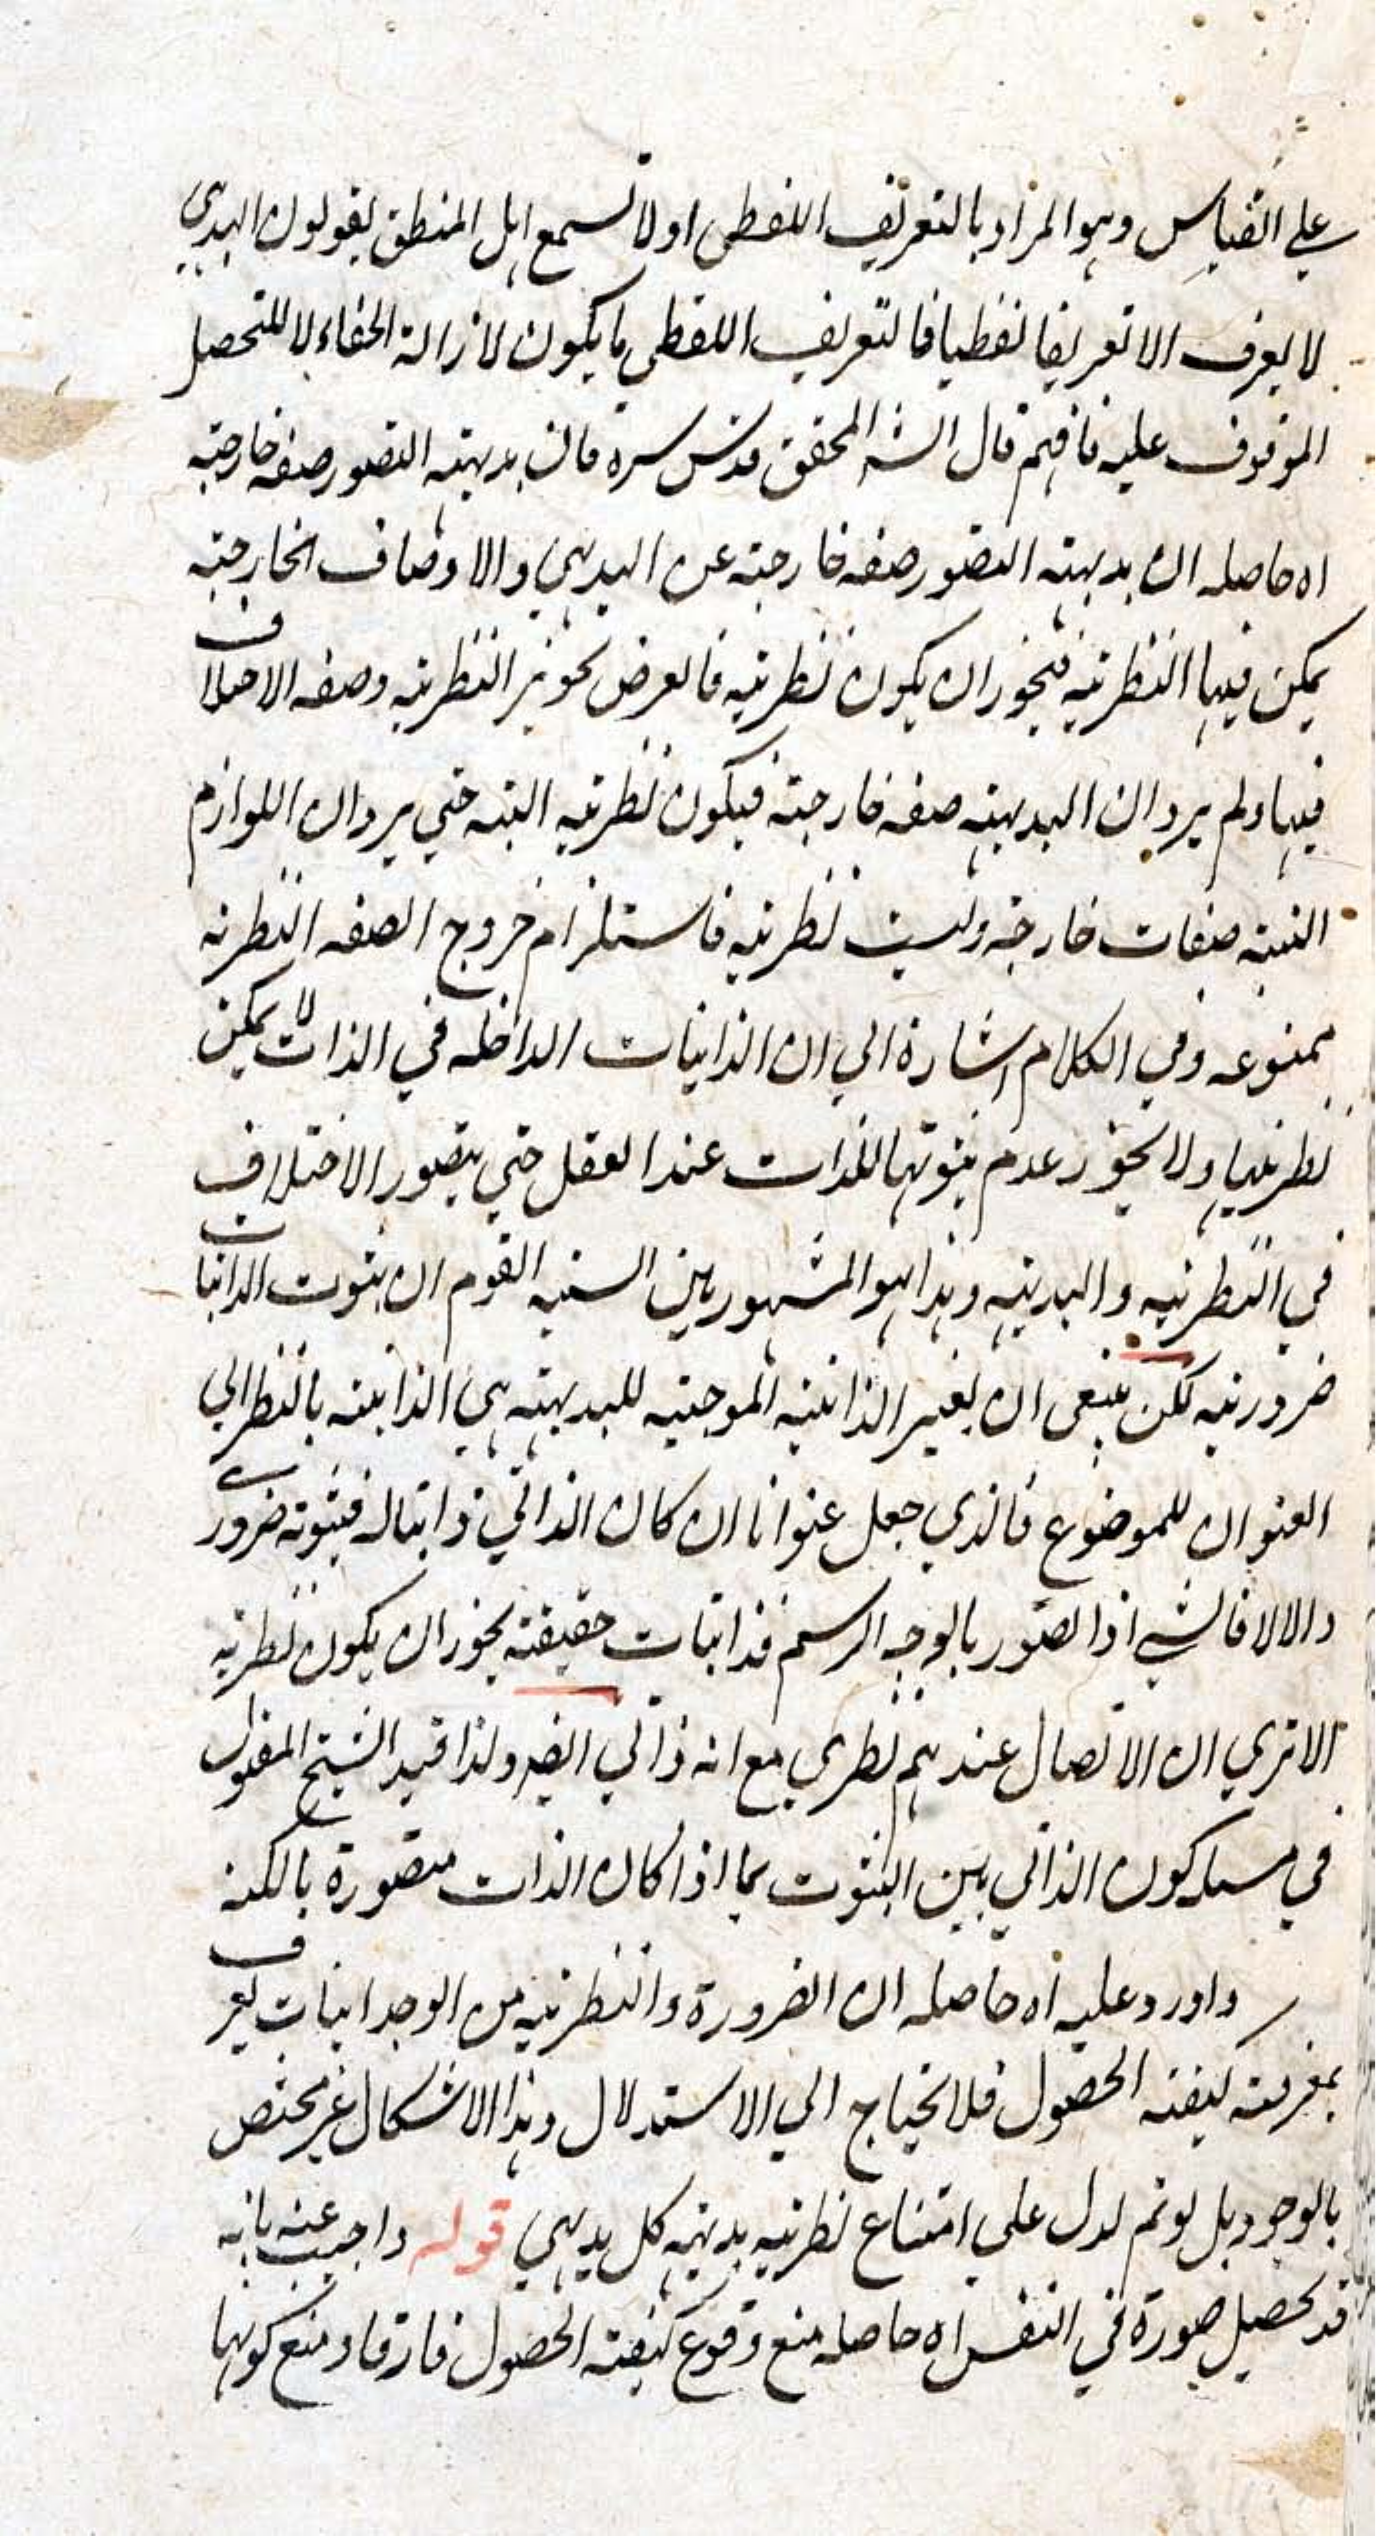 علي القياس وهو المراد بالتعريف اللفظي اولا تسمع اهل المنطق يقولون البديهي
لا يعرف الا تعريفا لفظيا فالتعريف اللفظي ما يكون لازالة الخفاء لا للتحصيل
الموقوف عليه فافهم قال الشه المحقق قدس سره فان بديهته التصور صفه خارجته
اه حاصله ان بديهته التصور صفه خارجته عن البديهي والاوصاف الخارجته
يمكن فيها النظريه فيجوز ان يكون نظريه فالغرض تجويز النظريه وصفه الاختلاف
فيها ولم يرد ان البديهته صفه خارجته فيكون نظريه البته حتي يرد ان اللوازم
البينه صفات خارجه وليست نظريه فاستلزام خروج الصفه النظريه
ممنوعه وفي الكلام اشارة الي ان الذاتيات الداخله في الذات لا يمكن
نظريتها ولا تجوز عدم ثبوتها للذات عند العقل حتي يتصور الاختلاف
في النظريه والبديهيه وهذا هو المشهور بين السنه القوم ان ثبوت الذاتيات
ضروريه لكن ينبغي ان يعتبر الذاتيه الموجبه للبديهته هي الذاتيه بالنظر الي
العنوان للموضوع فالذي جعل عنوانا ان كان الذاتي ذاتيا له فثبوته ضروري
والا لا فالشي اذا تصور بالوجه الرسم فذاتيات حقيقته يجوز ان يكون نظريه
الا تري ان الاتصال عندهم نظري مع انه ذاتي ايضه ولذا قيد الشيخ المقتول
في مسله كون الذاتي بين الثبوت بما اذا كان الذات متصورة بالكنه
واورد عليه اه حاصله ان الضرورة والنظريه من الوجدانيات يعرف
بمعرفته كيفته الحصول فلا يحتاج الي الاستدلال وهذا الاشكال غير مختص
بالوجود بل لو تم لدل علي امتناع نظريه بديهته كل بديهي قوله واجيب عنه بانه
قد تحصيل صورة في النفس اه حاصله منع وقوع كيفته الحصول فارقا ومنع كونها